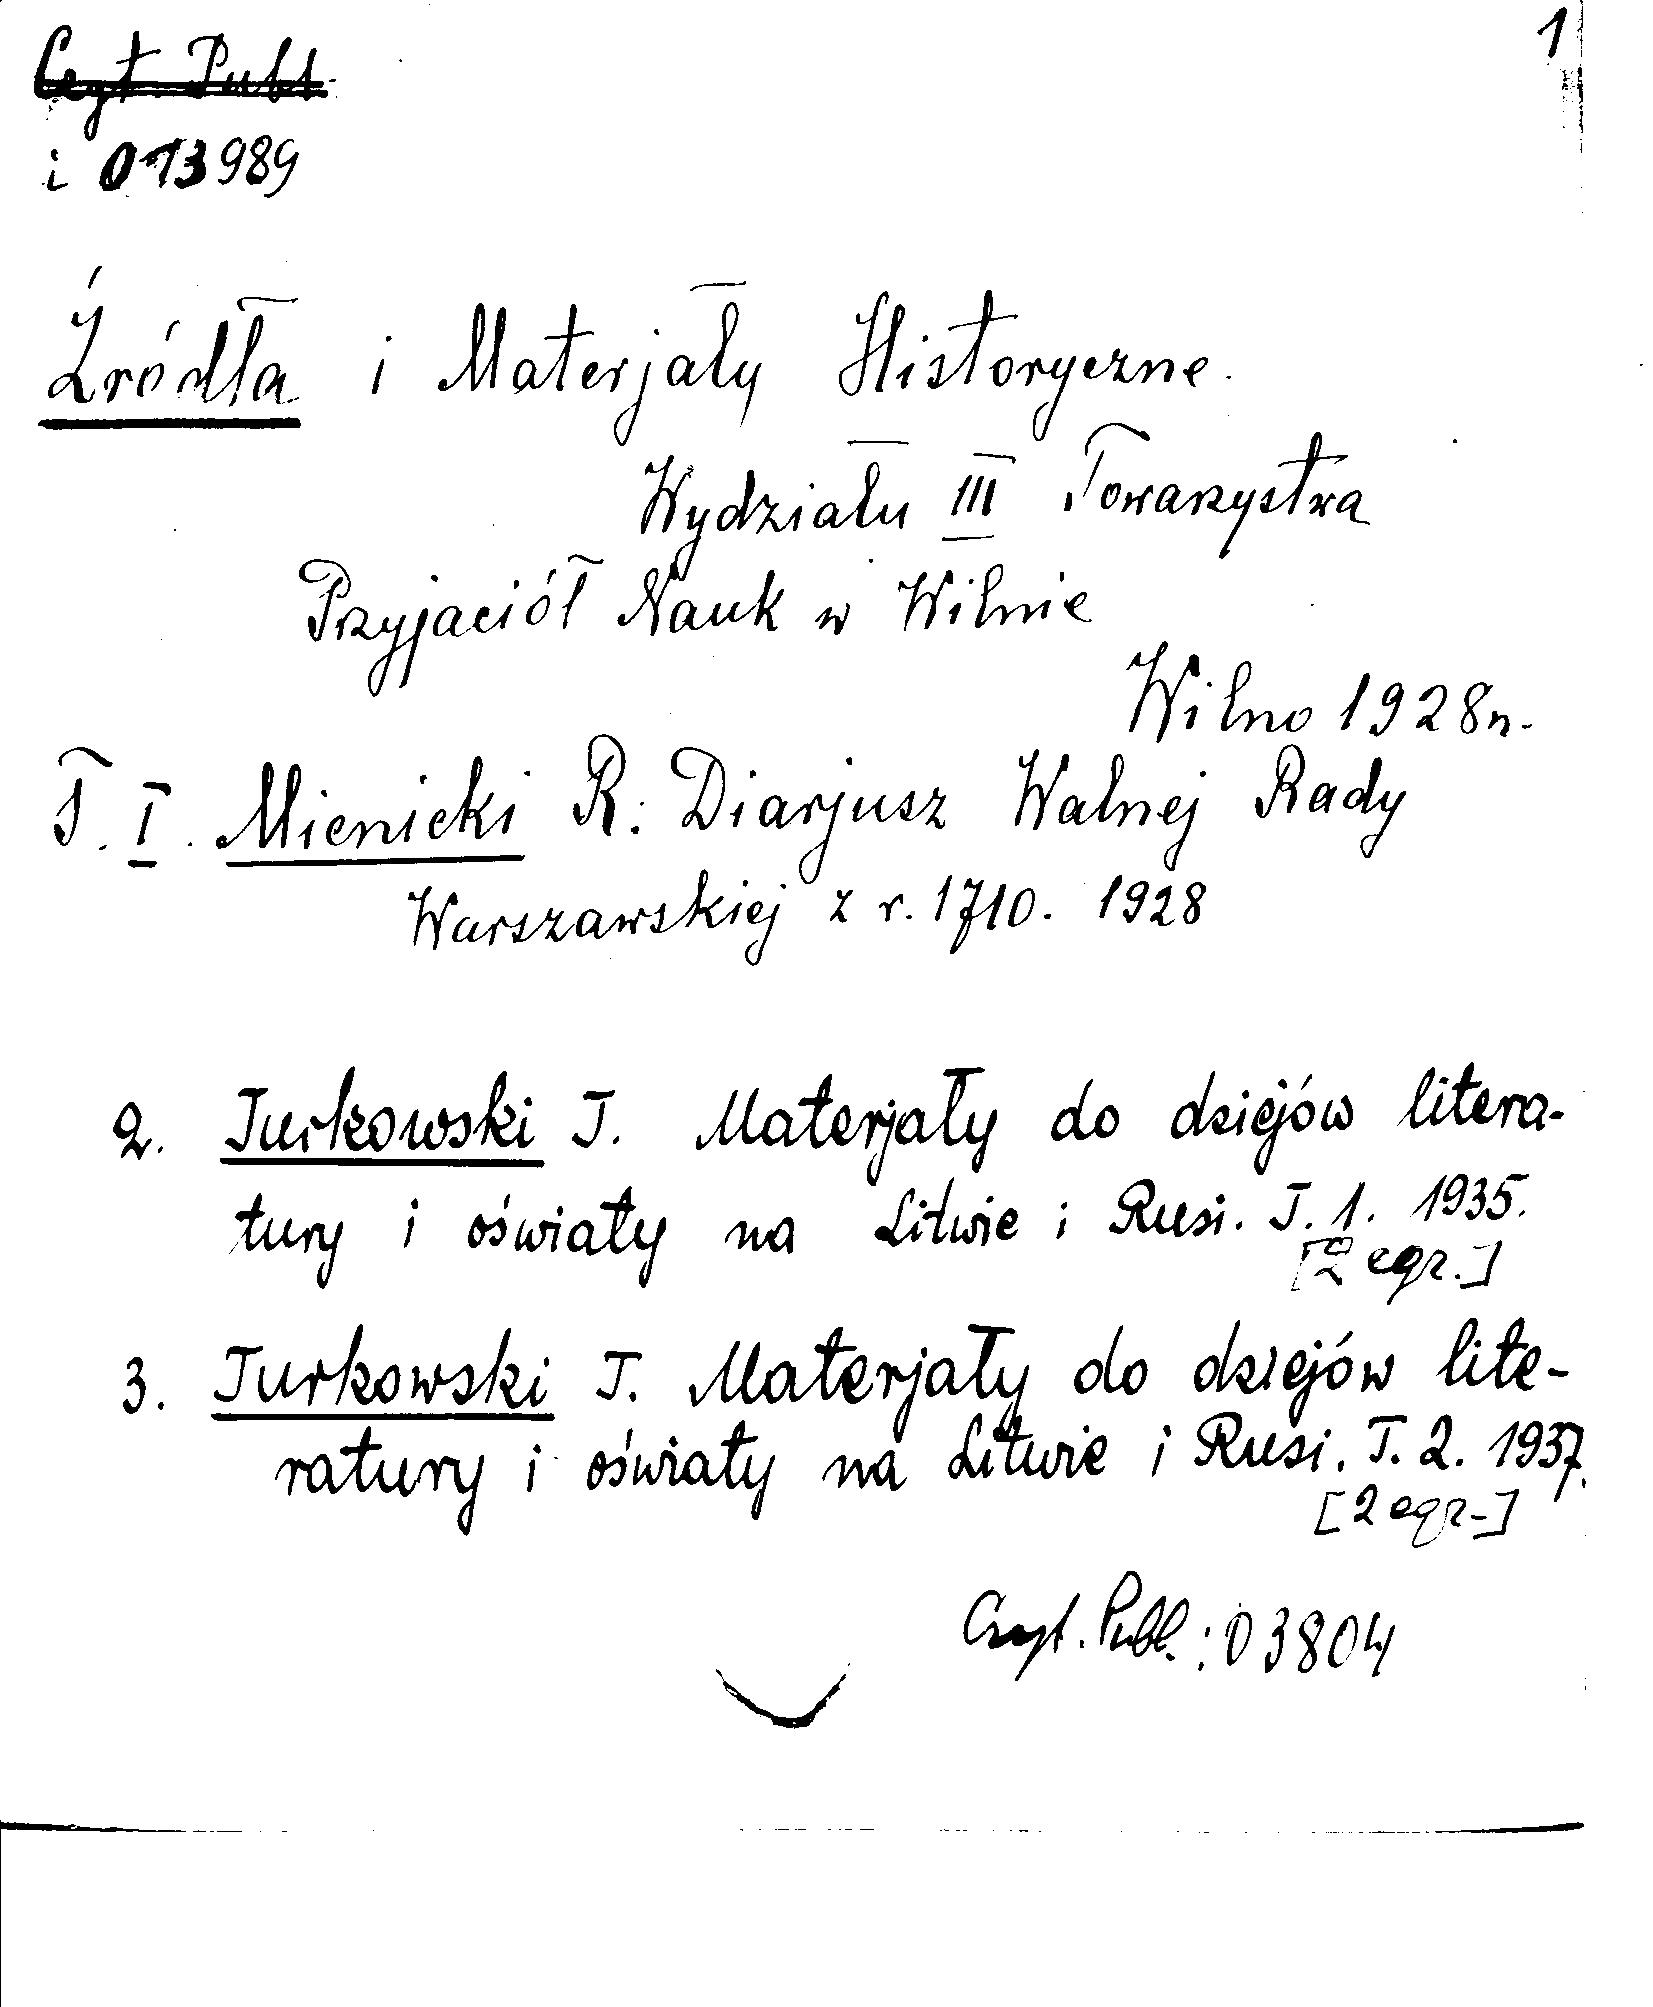 1
Czyt. Publ.
i 013989
Źródła i Materjały Historyczne.
Wydziału III Towarzystwa
Przyjaciół Nauk w Wilnie
Wilno 1928 r.
T. I. Mienicki R. Diarjusz Walnej Rady
Warszawskiej z r. 1710. 1928
2. Turkowski T. Materjały do dziejów litera-
tury i oświaty na Litwie i Rusi. T. 1. 1935.
[2 egz.]
3. Turkowski T. Materjały do dziejów lite-
ratury i oświaty na Litwie i Rusi. T. 2. 1937.
[2 egz.]
Czyt. Publ.: 03804